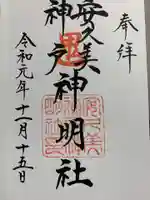 奉拝
安久美
神戸神明社
令和元年十一月十五日